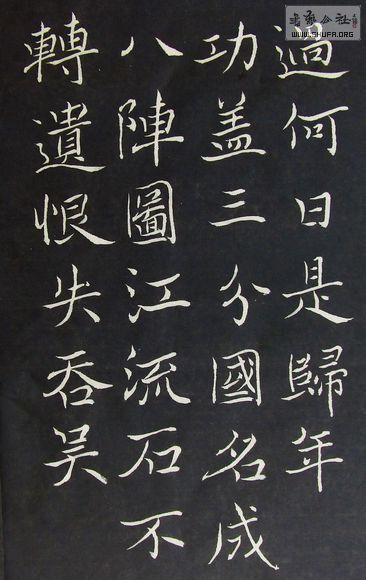 過何日是歸年
功盖三分國名成
八陣圖江流石不
轉遺恨失吞吴
書藝公社
WWW.SHUFA.ORG